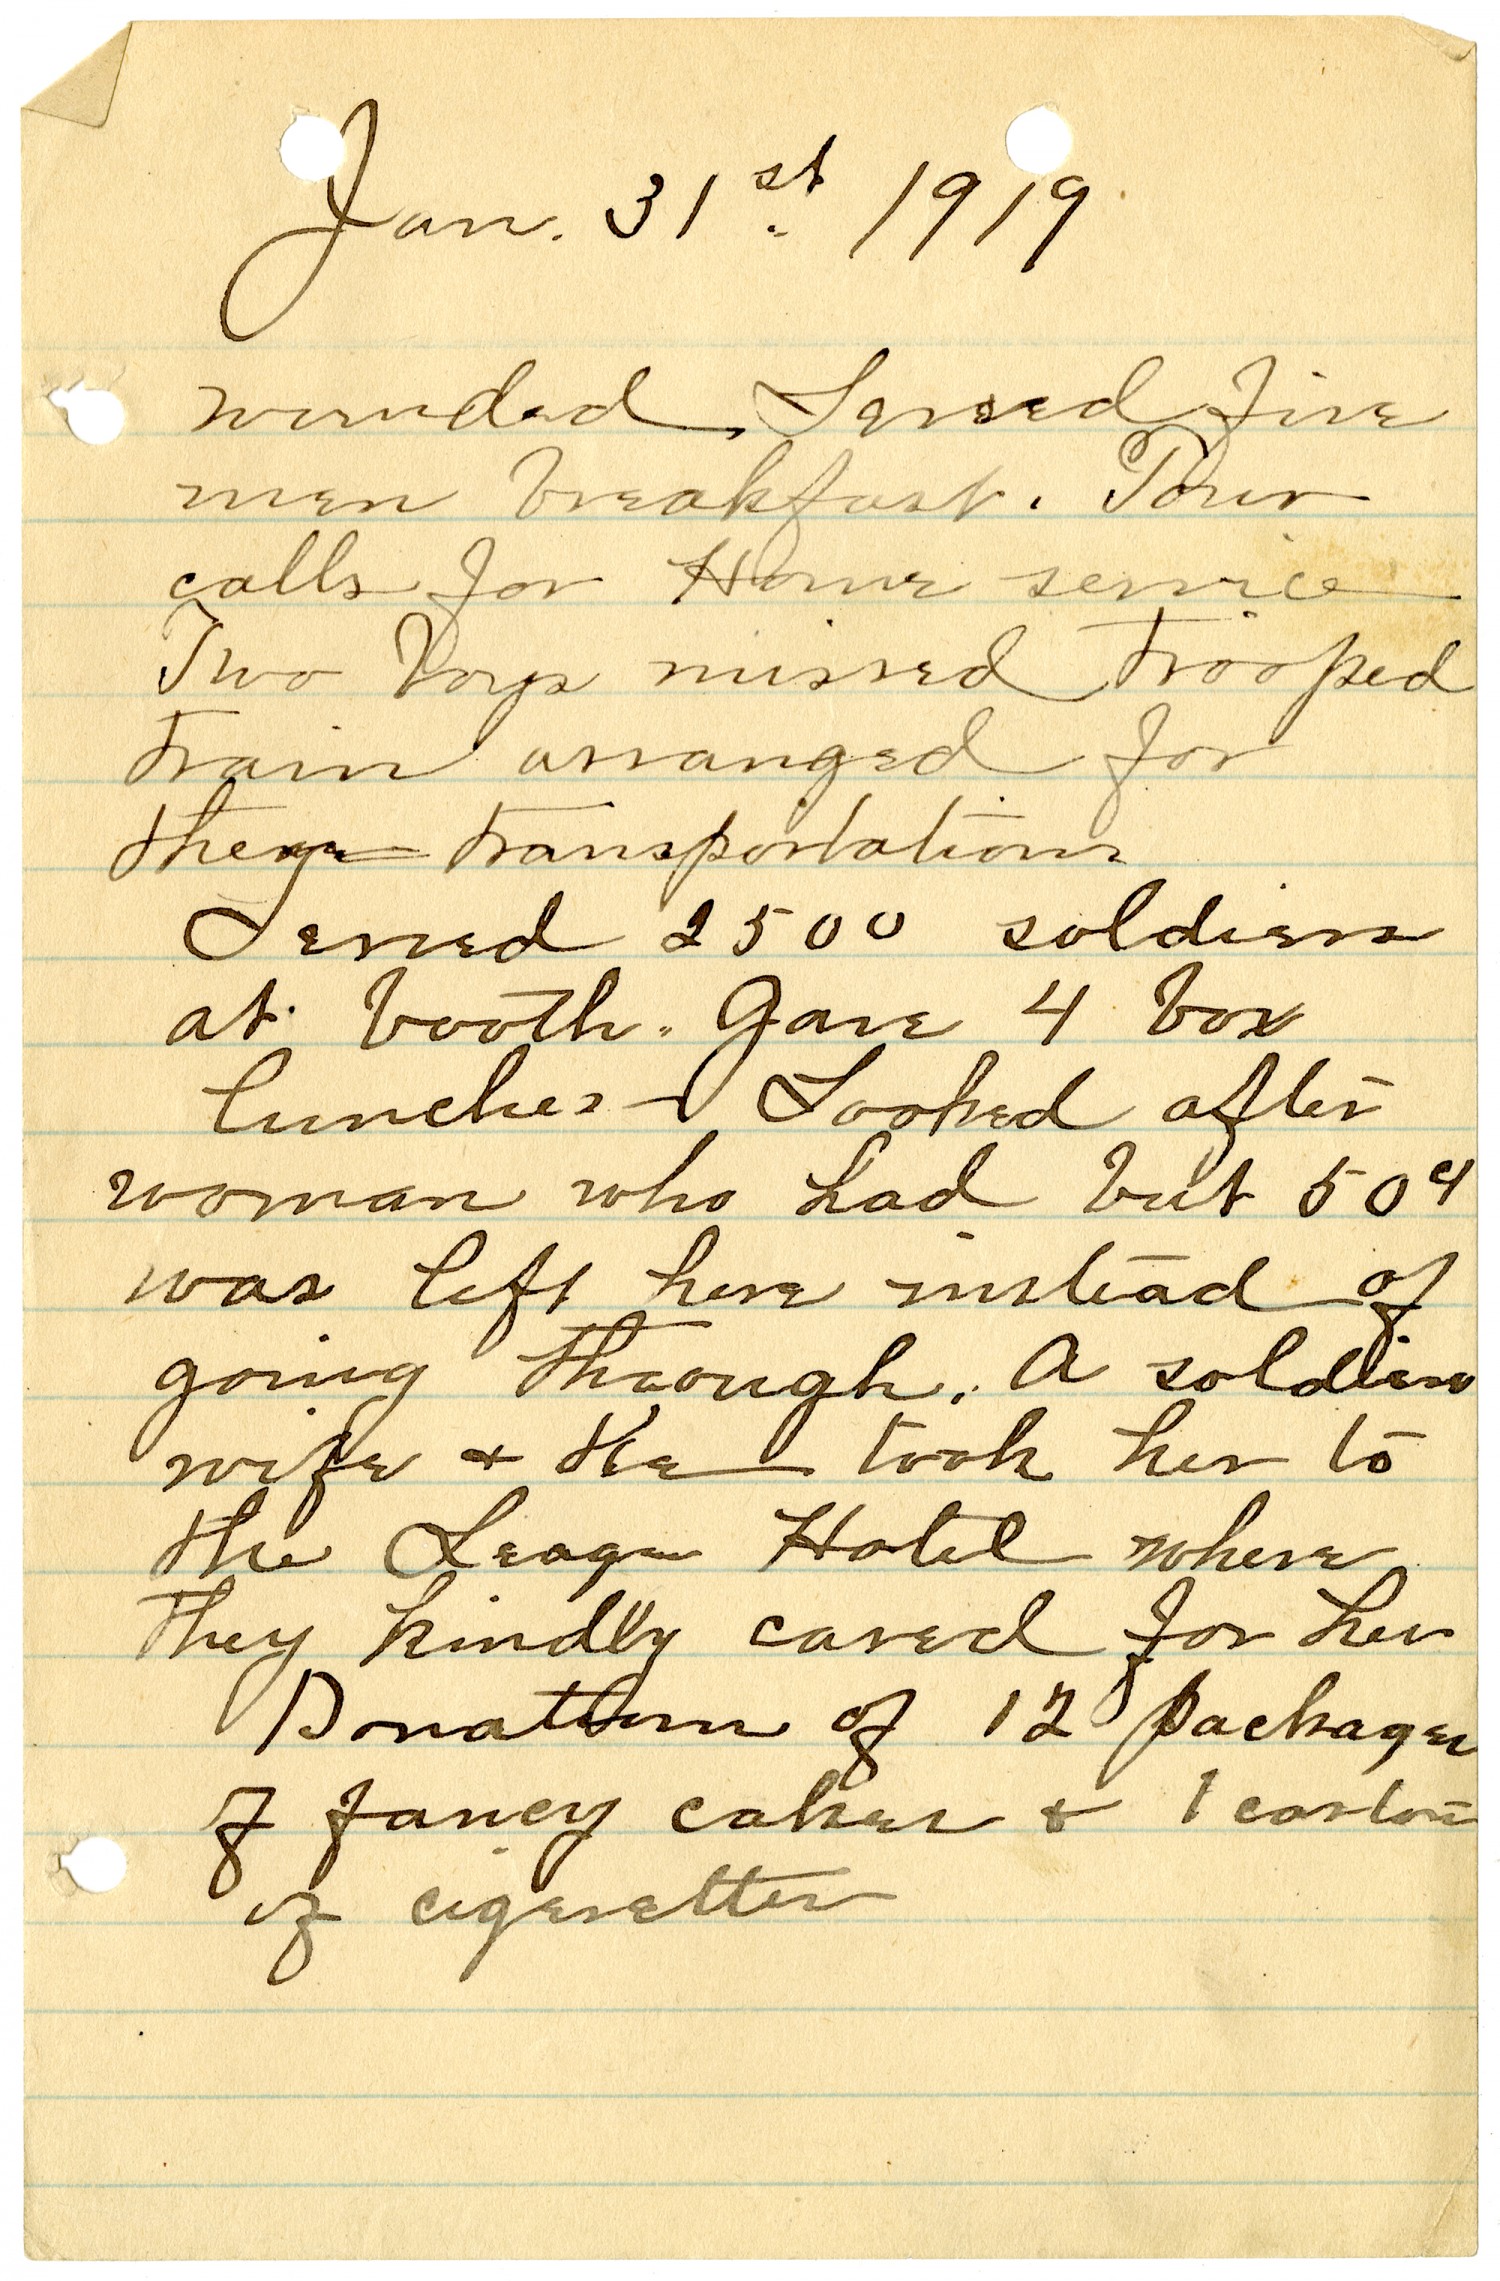 Jan. 31st. 1919
wounded. Served five
men breakfast. Four
calls for Home service
Two boys missed trooped
train arranged for
there transportation
Served 2500 soldiers
at booth. Gave 4 box
lunches - Looked after
woman who had but 50¢
was left here instead of
going through. A soldiers
wife & He took her to
the League Hotel where
they kindly cared for her
Donation of 12 packages
of fancy cakes & 1 carton
of cigeretter